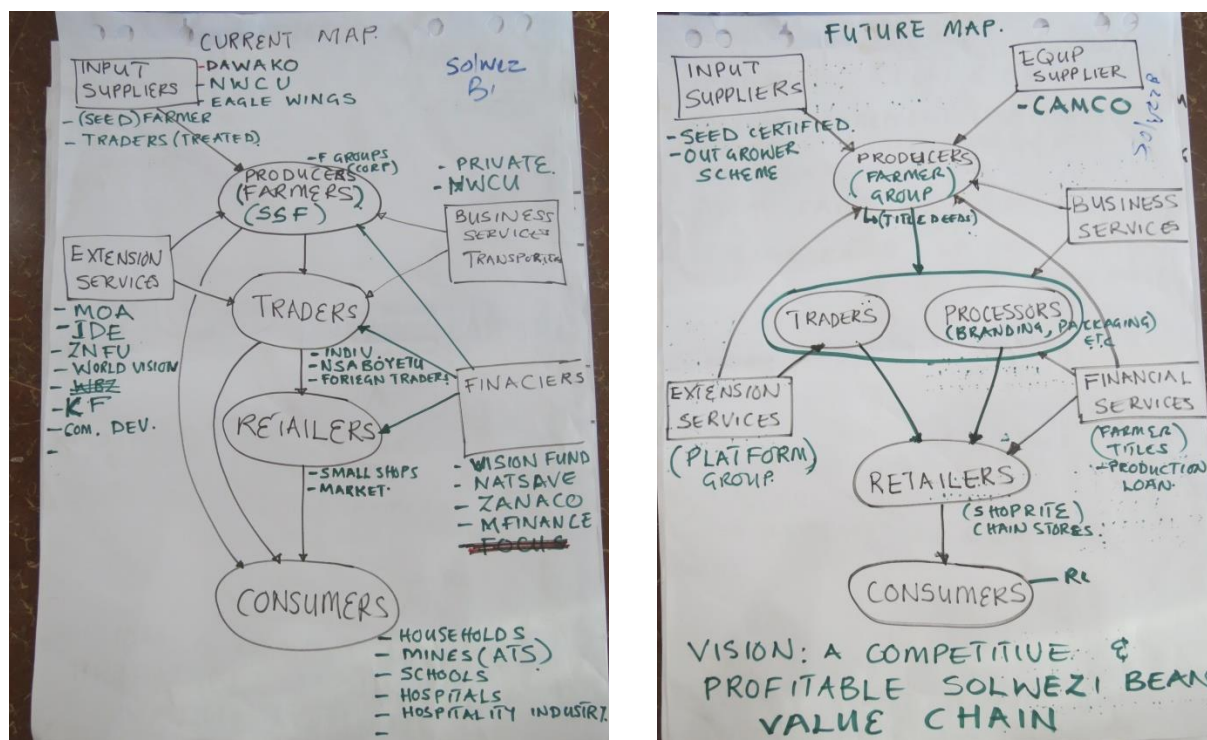 CURRENT MAP.
Solwez
INPUT
SUPPLIERS
- DAWAKO
- NWCU
- EAGLE WINGS
- (SEED) FARMER
- TRADERS (TREATED)
- F GROUPS
(CORP)
PRODUCERS
(FARMERS)
(SSF)
- PRIVATE.
- NWCU
BUSINESS
SERVICES
EXTENSION
SERVICES
- MOA
- IDE
- ZNFU
- WORLD VISION
- KF
- COM. DEV.
-
TRADERS
- INDIV
- NSABOYETU
- FORIEGN TRADERS
FINACIERS
- VISION FUND
- NATSAVE
- ZANACO
- MFINANCE
- FOCUS
RETAILERS
- SMALL SHOPS
- MARKET.
CONSUMERS
- HOUSEHOLDS
- MINES (ATS)
- SCHOOLS
- HOSPITALS
- HOSPITALITY INDUSTRY.
-
FUTURE MAP.
INPUT
SUPPLIERS
- SEED CERTIFIED.
- OUT GROWER
SCHEME
EQUP
SUPPLIER
- CAMCO
PRODUCERS
(FARMER)
GROUP
↳(TITLE DEEDS)
BUSINESS
SERVICES
TRADERS
PROCESSORS
(BRANDING, PACKAGING)
ETC
EXTENSION
SERVICES
(PLATFORM)
GROUP.
FINANCIAL
SERVICES
(FARMER)
TITLES
- PRODUCTION
LOAN.
RETAILERS
(SHOPRITE)
CHAIN STORES.
CONSUMERS
VISION: A COMPETITIVE &
PROFITABLE SOLWEZI BEAN
VALUE CHAIN